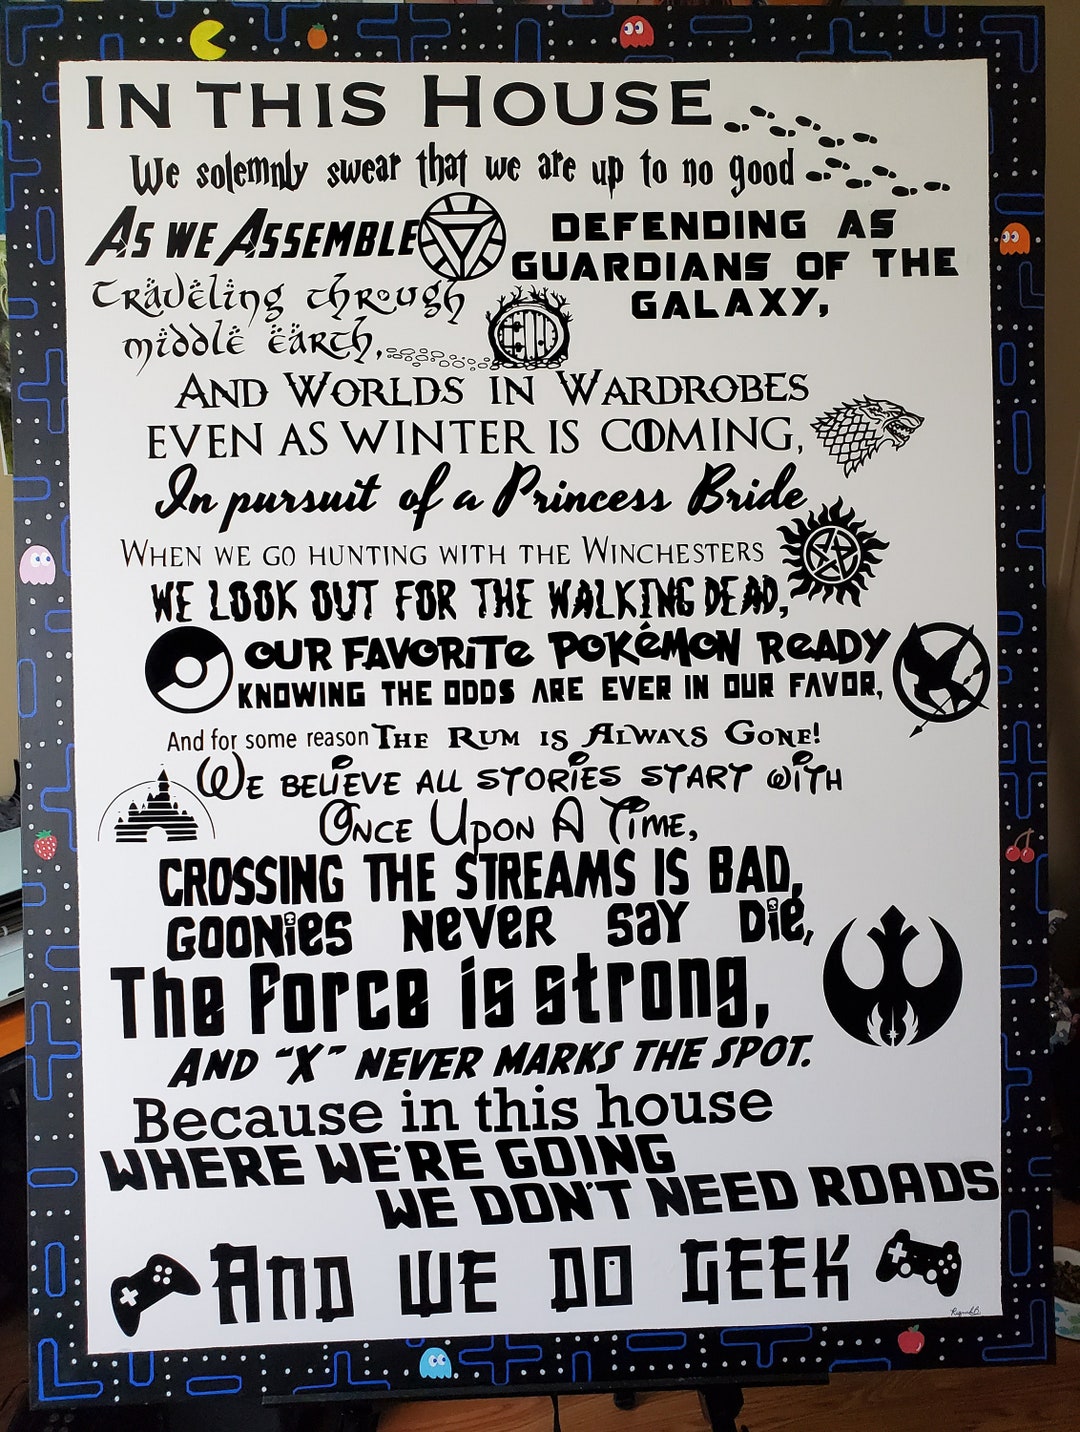 IN THIS HOUSE
We solemnly swear that we are up to no good
AS WE ASSEMBLE
DEFENDING AS
GUARDIANS OF THE
GALAXY,
Traveling through
middle earth,
AND WORLDS IN WARDROBES
EVEN AS WINTER IS COMING,
In pursuit of a Princess Bride
WHEN WE GO HUNTING WITH THE WINCHESTERS
WE LOOK OUT FOR THE WALKING DEAD,
OUR FAVORITE POKéMON READY
KNOWING THE ODDS ARE EVER IN OUR FAVOR,
And for some reason THE RUM IS ALWAYS GONE!
WE BELIEVE ALL STORIES START WITH
ONCE UPON A TIME,
CROSSING THE STREAMS IS BAD,
GOONieS NeVeR SaY Die,
The Force is strong,
AND "X" NEVER MARKS THE SPOT.
Because in this house
WHERE WE'RE GOING
WE DON'T NEED ROADS
AND WE DO GEEK